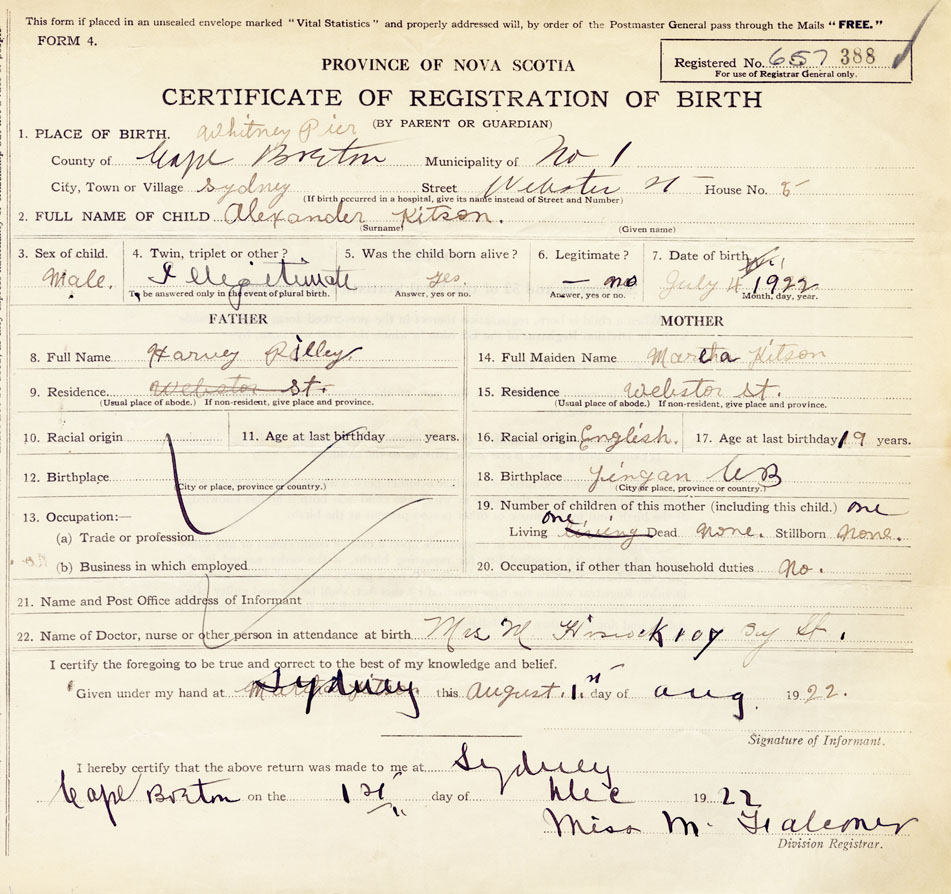 This form if placed in an unsealed envelope marked "Vital Statistics" and properly addressed will, by order of the Postmaster General pass through the Mails "FREE."
FORM 4.
Registered No. 657 388
For use of Registrar General only.
PROVINCE OF NOVA SCOTIA
CERTIFICATE OF REGISTRATION OF BIRTH
(BY PARENT OR GUARDIAN)
1. PLACE OF BIRTH. Whitney Pier
County of Cape Breton Municipality of No 1
City, Town or Village Sydney Street Webster St House No. 5
(If birth occurred in a hospital, give its name instead of Street and Number)
2. FULL NAME OF CHILD Alexander Kitson.
(Surname) (Given name)
3. Sex of child. 4. Twin, triplet or other? 5. Was the child born alive? 6. Legitimate? 7. Date of birth
Male. Illegitimate yes — no July 4 1922
To be answered only in the event of plural birth. Answer, yes or no. Answer, yes or no. Month, day, year.
FATHER MOTHER
8. Full Name Harvey Rilley 14. Full Maiden Name Martha Kitson
9. Residence Webstor St. 15. Residence Webstor St.
(Usual place of abode.) If non-resident, give place and province. (Usual place of abode.) If non-resident, give place and province.
10. Racial origin 11. Age at last birthday years. 16. Racial origin English. 17. Age at last birthday 19 years.
12. Birthplace 18. Birthplace
(City or place, province or country.) (City or place, province or country.)
19. Number of children of this mother (including this child.) one
13. Occupation:—
one
(a) Trade or profession Living living Dead none. Stillborn none.
(b) Business in which employed 20. Occupation, if other than household duties no.
21. Name and Post Office address of Informant
22. Name of Doctor, nurse or other person in attendance at birth Mrs M 107 St.
I certify the foregoing to be true and correct to the best of my knowledge and belief.
Given under my hand at Sydney this August 1st day of aug 1922.
Signature of Informant.
I hereby certify that the above return was made to me at Sydney
Cape Breton on the 1st day of Dec 1922
Miss M. Falconer
Division Registrar.